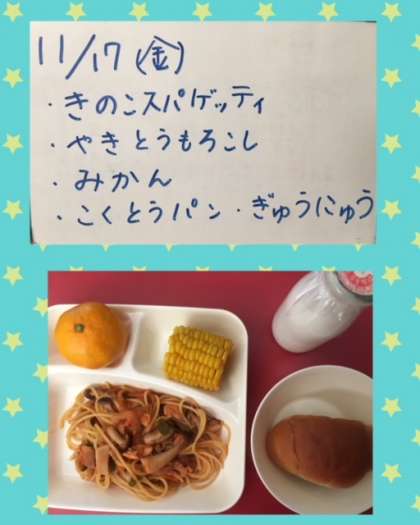 11/17(金)
・きのこスパゲッティ
・やきとうもろこし
・みかん
・こくとうパン・ぎゅうにゅう